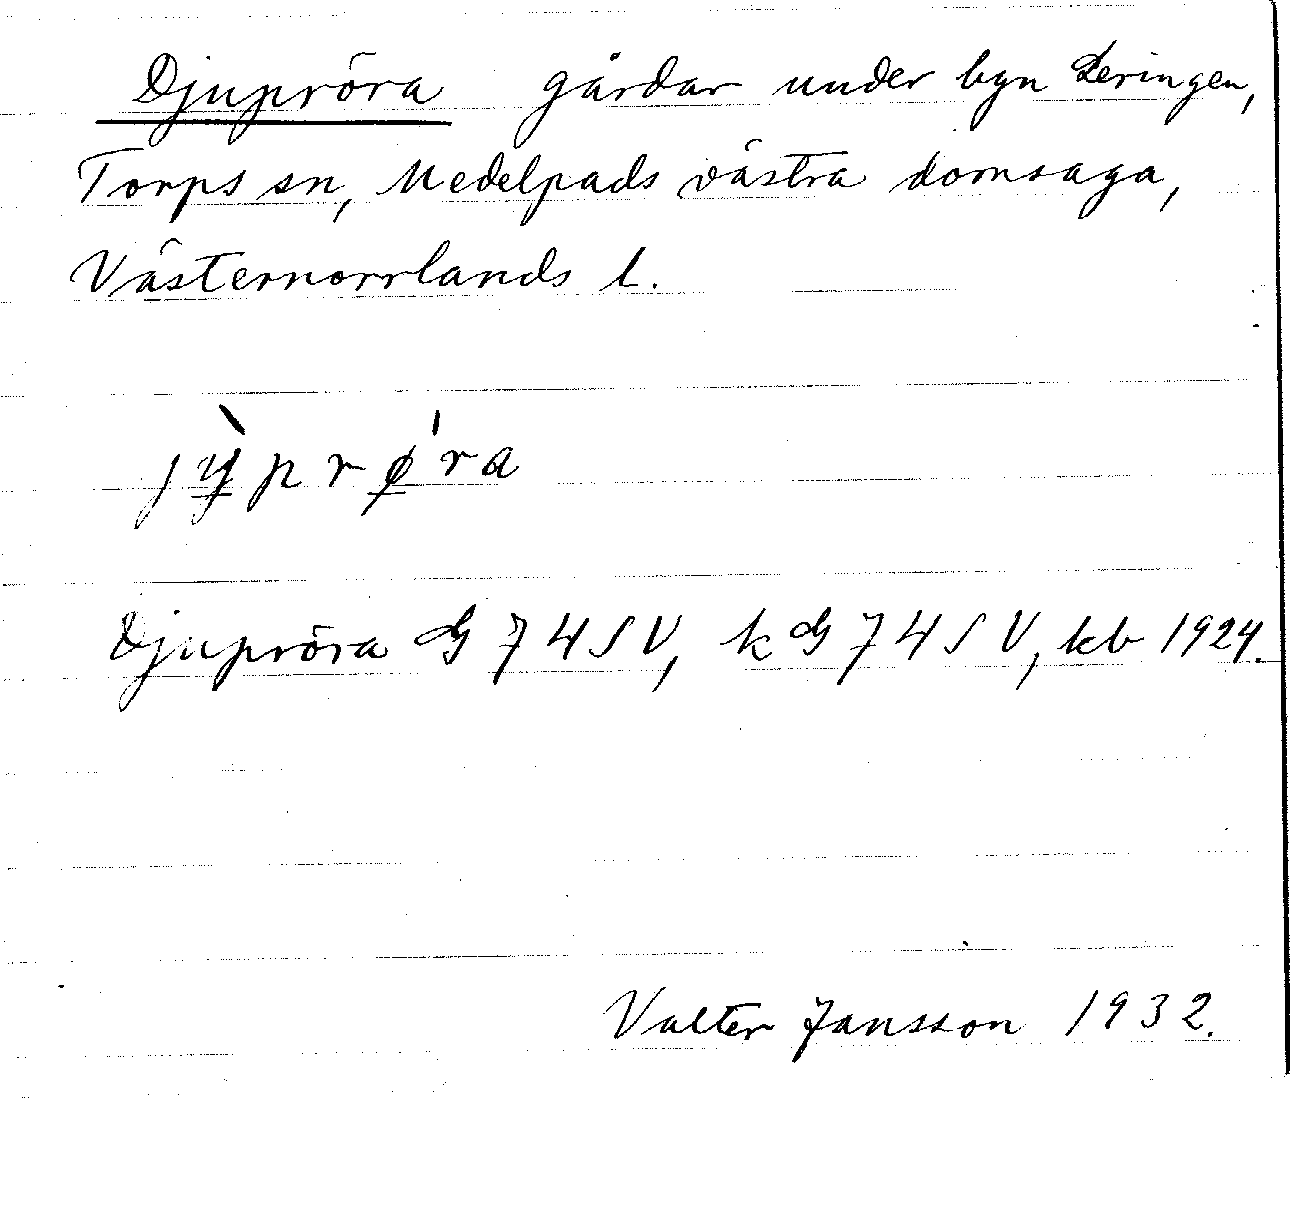 Djupröra gårdar under byn Leringen,
Torps sn, Medelpads västra domsaga,
Västernorrlands l.
jỳ̱prǿ̱ra
Djupröra G 74 SV, k G 74 SV, kb 1924.
Valter Jansson 1932.